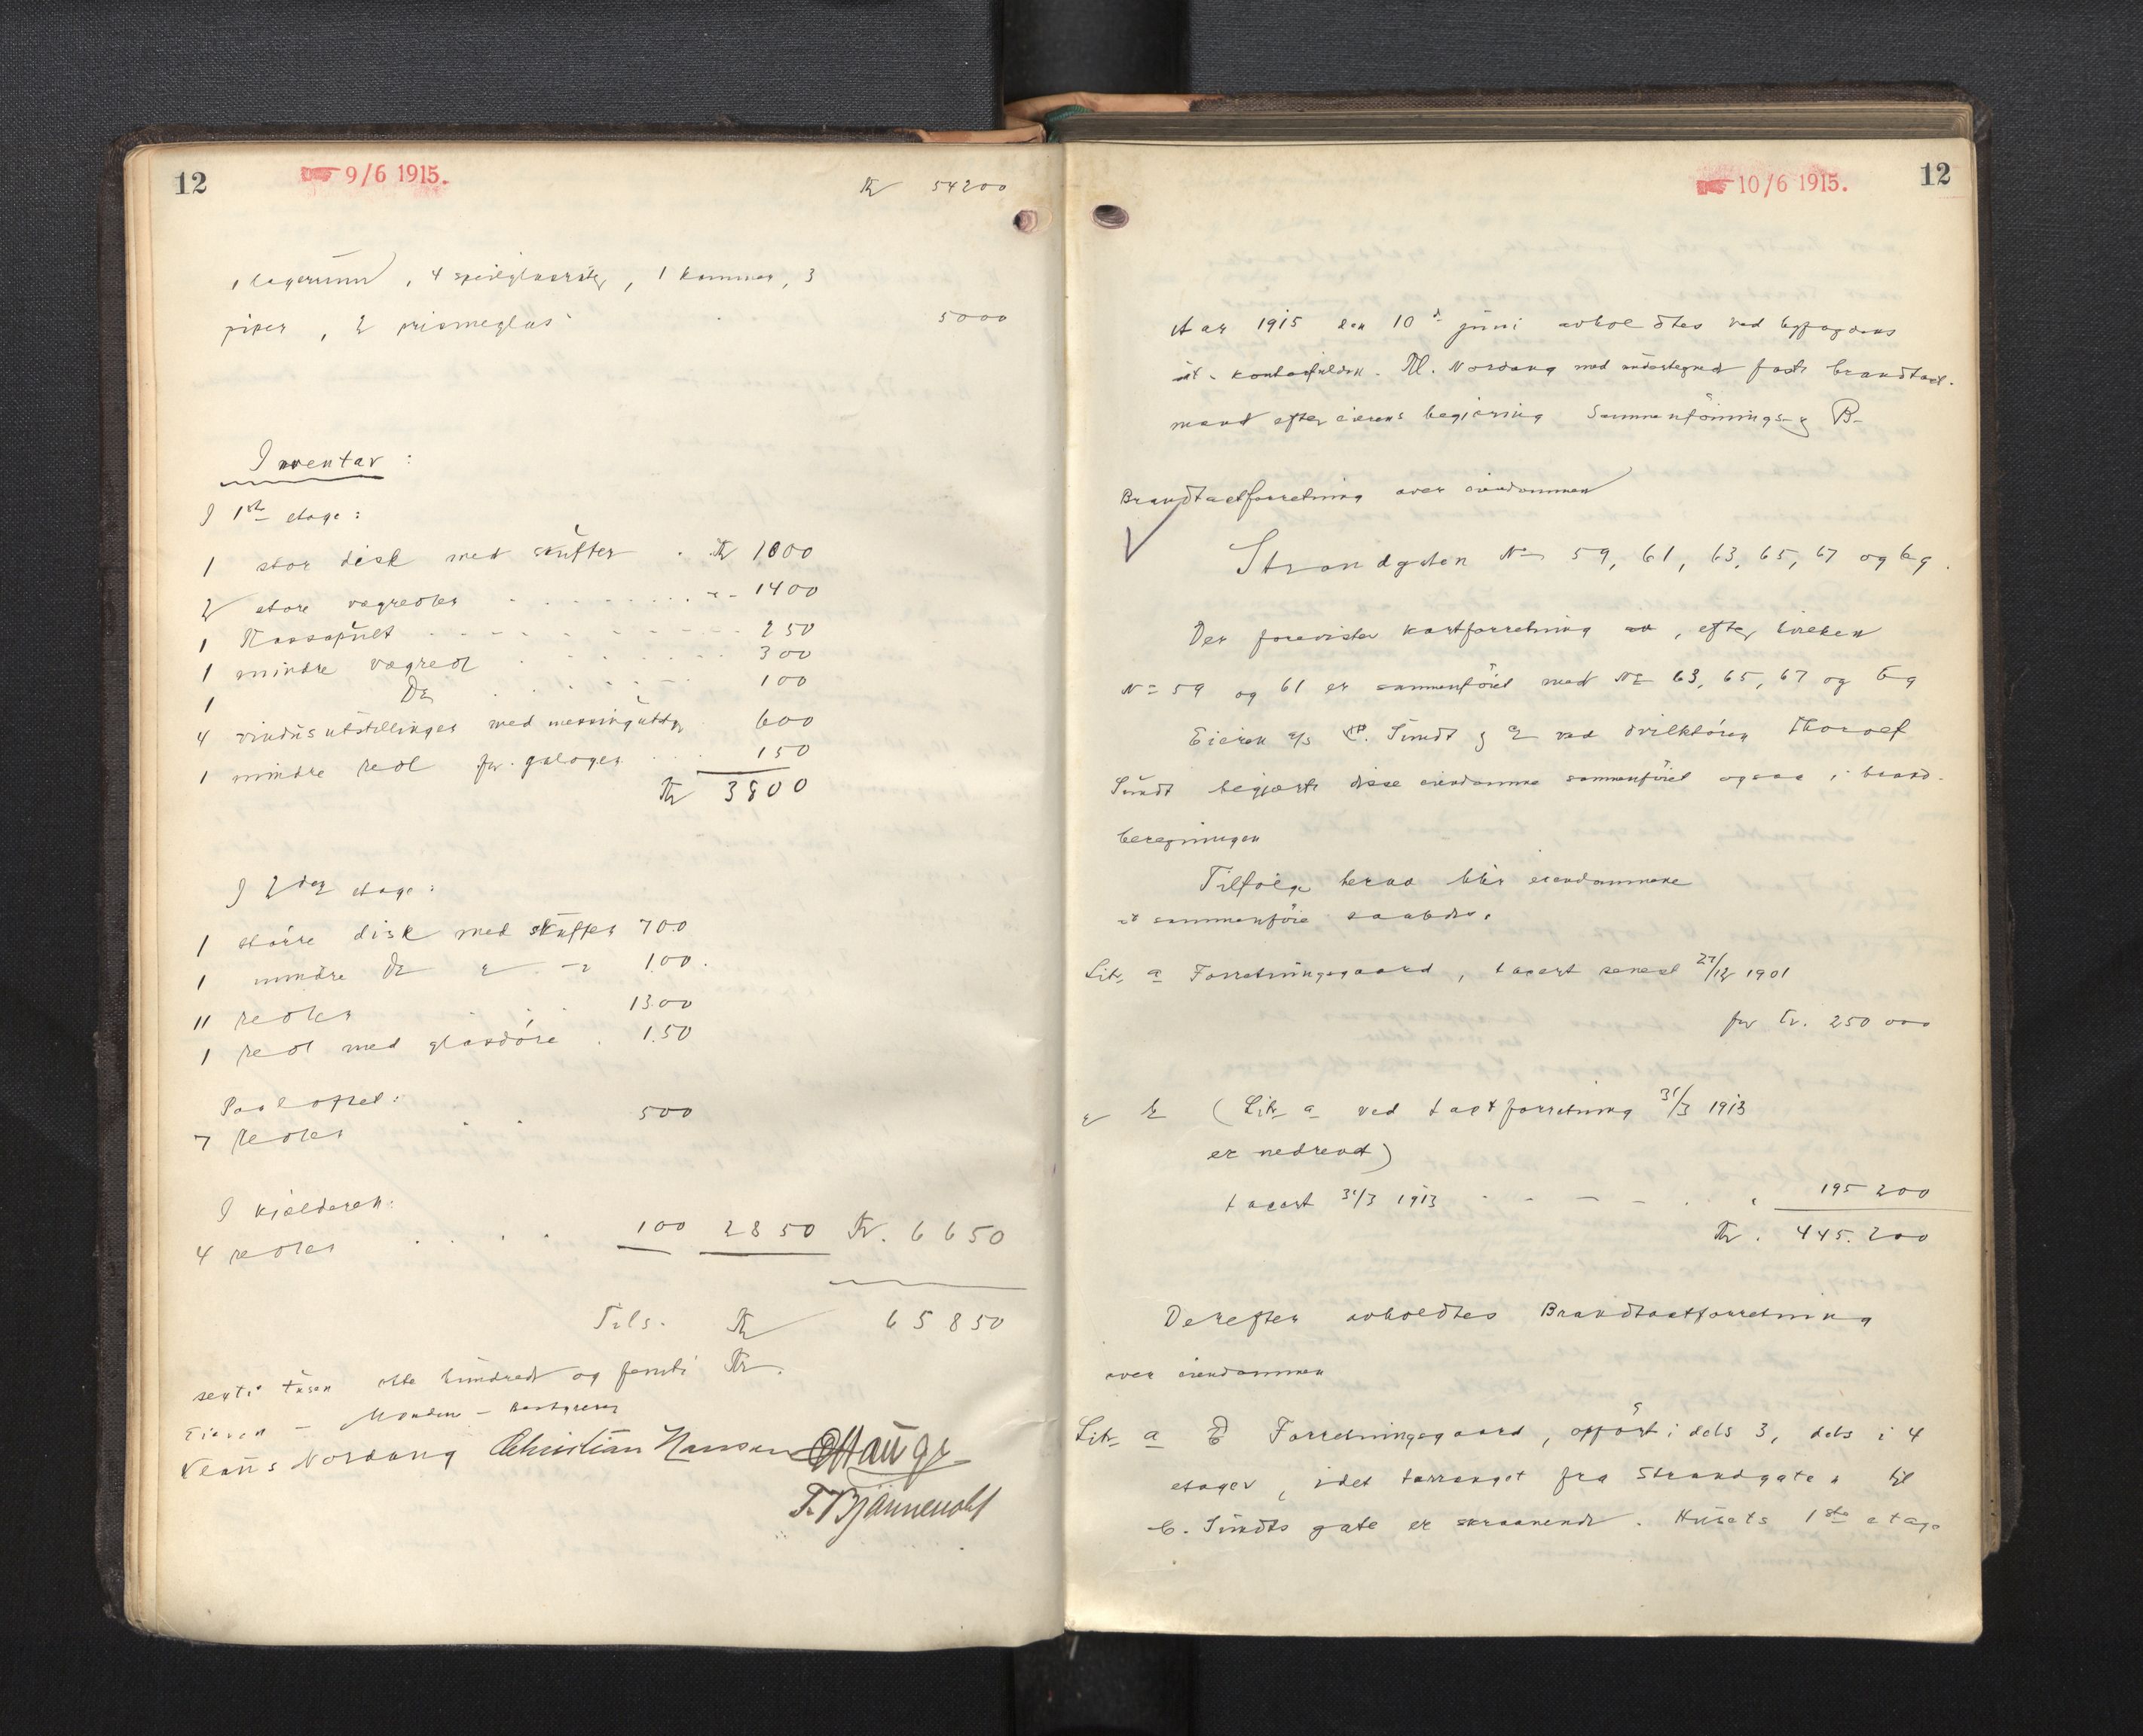 12
9/6 1915.
Kr 54200
1 lagerrum, 4 speilglasruter, 1 kammer, 3
piper, 2 prismeglas
5000
Inventar:
I 1ste etage:
1 stor disk med skuffer . Kr 1000
2 store vægreoler 1400
1 Kassapult 250
1 mindre vægreol 300
1 Do 100
4 vindusutstillinger med messing 600
1 mindre reol for galoger 150
Kr 3800
I 2den etage:
1 større disk med skuffer 700
1 mindre Do 100.
11 reoler 1300
1 reol med glasdøre . 150
Paa loftet:
7 reoler 500
I kjælderen:
4 reoler 100 2850 Kr. 6650
Tils. Kr 65850
sexti tusen otte hundrede og femti Kr.
Eieren
Klaus Nordang Christian Hansen OHauge
T. Bjønnevold
10/6 1915.
12
Aar 1915 den 10d juni avholdtes ved byfogdens
kontorfuldm. Kl. Nordang med undertegnede faste brandtaxt.
mænd efter eierens begjæring Sammenføinings- og B-
Brandtaxtforretning over eiendommen
Strandgaten No 59, 61, 63, 65, 67 og 69.
Der forevistes kartforretning , efter hvilken
No 59 og 61 er sammenføiet med No 63, 65, 67 og 69
Eieren a/s Sundt & Co ved direktøren Thorolf
Sundt begjærte disse eiendomme sammenføiet ogsaa i brand-
beregningen
Tilfølge herav blir eiendommene
at sammenføie saaledes.
Litr a Forretningsgaard, taxert senest 27/12 1901
for kr. 250 000
" b (Litr a ved taxtforretning 31/3 1913
er nedrevet)
taxert 31/3 1913 195 200
Kr. 445.200
Derefter avholdtes Brandtaxtforretning
over eiendommen
Litr a Forretningsgaard, opført i dels 3, dels i 4
etager, idet terrænget fra Strandgaten til
C. Sundts gate er skraanende. Husets 1ste etage